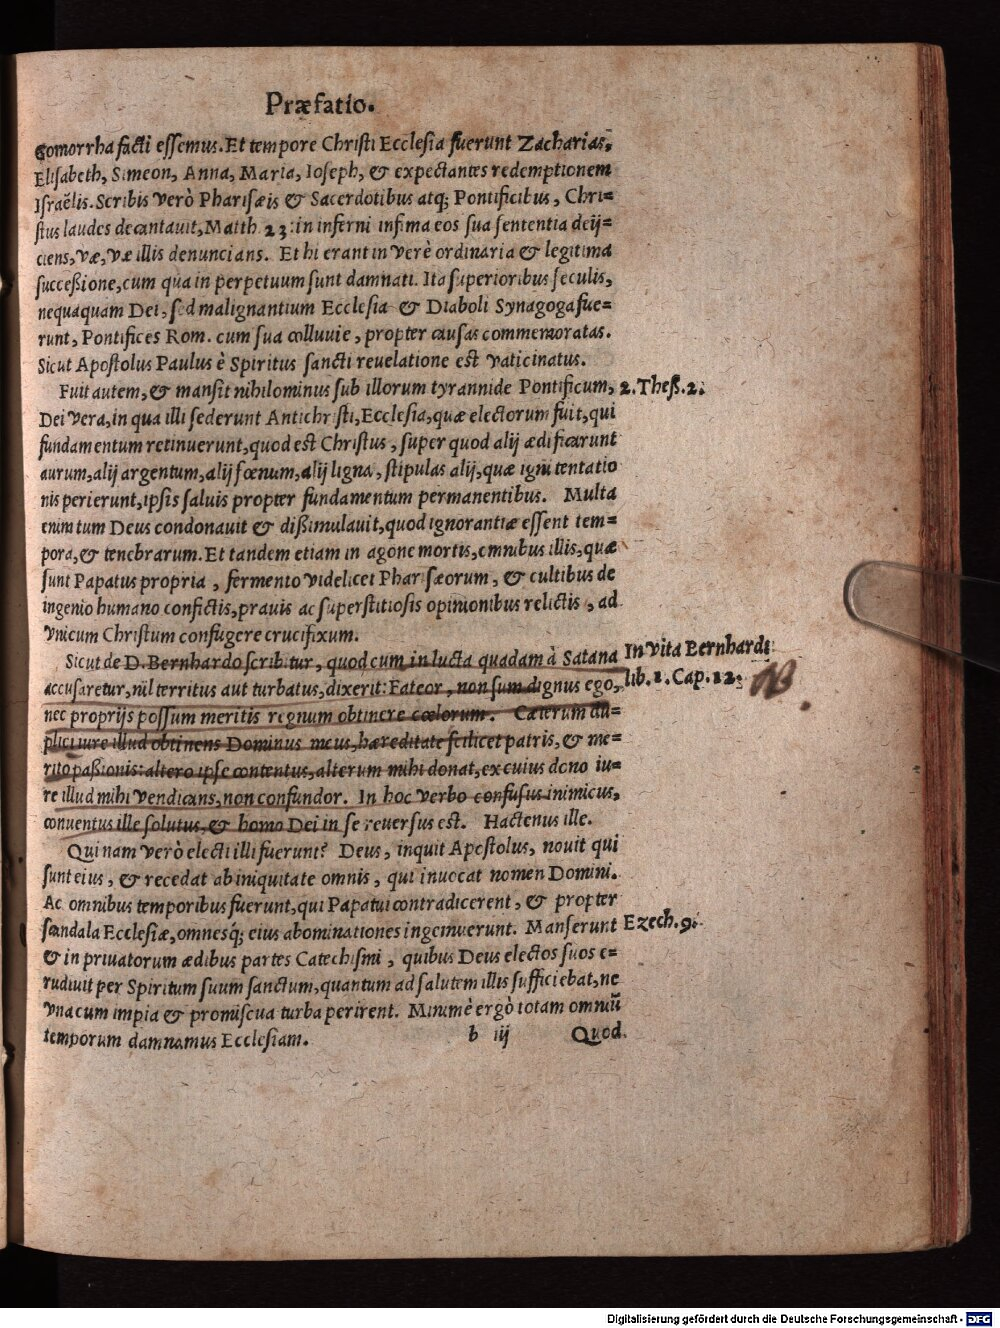 Præfatio.
Gomorrha facti essemus. Et tempore Christi Ecclesia fuerunt Zacharias,
Elisabeth, Simeon, Anna, Maria, Ioseph, & expectantes redemptionem
Israëlis. Scribis verò Pharisæis & Sacerdotibus atq; Pontificibus, Chri=
stus laudes decantauit, Matth. 23: in inferni infima eos sua sententia deij=
ciens, væ, væ illis denuncians. Et hi erant in verè ordinaria & legitima
successione, cum qua in perpetuum sunt damnati. Ita superioribus seculis,
nequaquam Dei, sed malignantium Ecclesia & Diaboli Synagoga fue=
runt, Pontifices Rom. cum sua colluuie, propter causas commemoratas.
Sicut Apostolus Paulus è Spiritus sancti reuelatione est vaticinatus.
Fuit autem, & mansit nihilominus sub illorum tyrannide Pontificum, 2. Thess. 2.
Dei vera, in qua illi sederunt Antichristi, Ecclesia, quæ electorum fuit, qui
fundamentum retinuerunt, quod est Christus, super quod alij ædificarunt
aurum, alij argentum, alij fœnum, alij ligna, stipulas alij, quæ igni tentatio
nis perierunt, ipsis saluis propter fundamentum permanentibus. Multa
enim tum Deus condonauit & dissimulauit, quod ignorantiæ essent tem=
pora, & tenebrarum. Et tandem etiam in agone mortis, omnibus illis, quæ
sunt Papatus propria, fermento videlicet Pharisæorum, & cultibus de
ingenio humano confictis, prauis ac superstitiosis opinionibus relictis, ad
vnicum Christum confugere crucifixum.
Sicut de D. Bernhardo scribitur, quod cum in lucta quadam à Satana In vita Bernhardi
accusaretur, nil territus aut turbatus, dixerit: Fateor, non sum dignus ego, lib. 1. Cap. 12. NB
nec proprijs possum meritis regnum obtinere cœlorum. Cæterum du=
plici iure illud obtinens Dominus meus, hæreditate scilicet patris, & me=
rito passionis: altero ipse contentus, alterum mihi donat, ex cuius dono iu=
re illud mihi vendicans, non confundor. In hoc verbo confusus inimicus,
conuentus ille solutus, & homo Dei in se reuersus est. Hactenus ille.
Quinam verò electi illi fuerunt? Deus, inquit Apostolus, nouit qui
sunt eius, & recedat ab iniquitate omnis, qui inuocat nomen Domini.
Ac omnibus temporibus fuerunt, qui Papatui contradicerent, & propter
scandala Ecclesiæ, omnesq; eius abominationes ingemuerunt. Manserunt Ezech. 9.
& in priuatorum ædibus partes Catechismi, quibus Deus electos suos e=
rudiuit per Spiritum suum sanctum, quantum ad salutem illis sufficiebat, ne
vna cum impia & promiscua turba perirent. Minimè ergò totam omniũ
temporum damnamus Ecclesiam. b iij Quod
Digitalisierung gefördert durch die Deutsche Forschungsgemeinschaft - DFG